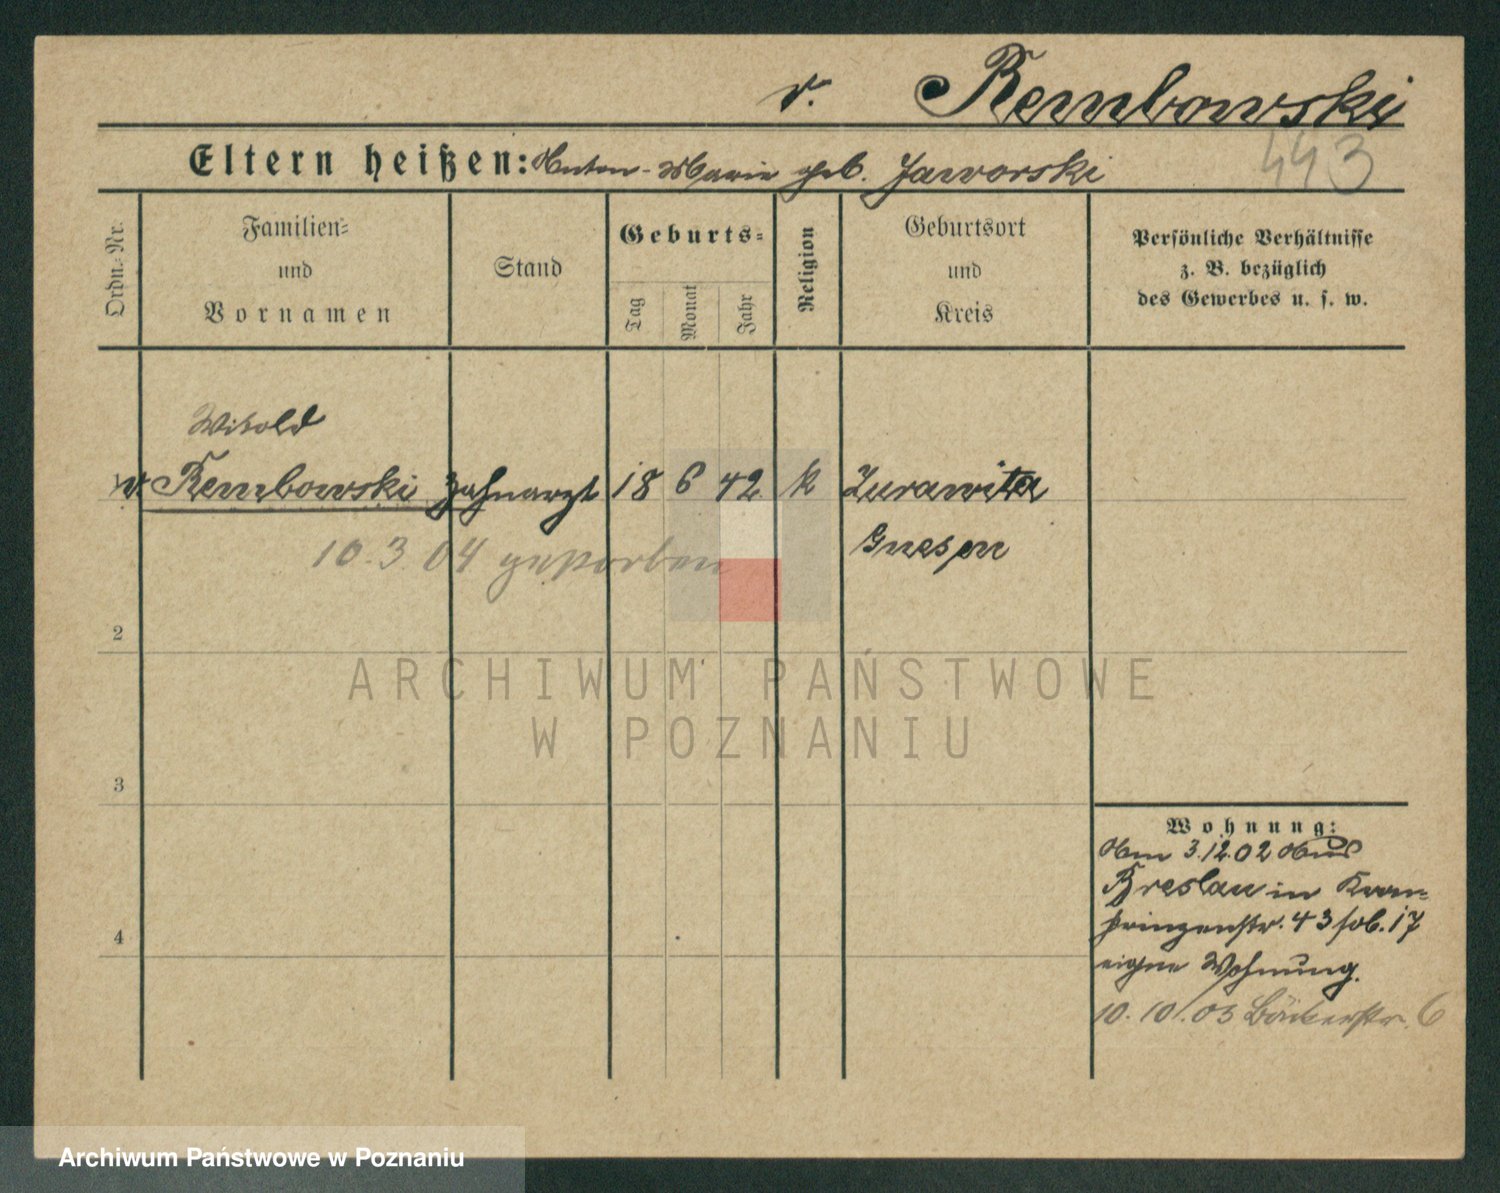 v. Rembowski
Eltern heißen: Anton - Marie geb. Jaworski
443
Ordn.-Nr.
Familien-
und
Vornamen
Stand
Geburts-
Tag
Monat
Jahr
Religion
Geburtsort
und
Kreis
Persönliche Verhältnisse
z. B. bezüglich
des Gewerbes u. s. w.
Witold
v. Rembowski Zahnarzt 18 6 42 k Zurawita
Gnesen
10.3.04 gestorben
2
3
4
Wohnung:
Am 3.12.02 Aus
Breslau in Kron-
prinzenstr. 43 17
eigne Wohnung.
10.10.03 Bäckerstr. 6
ARCHIWUM PAŃSTWOWE
W POZNANIU
Archiwum Państwowe w Poznaniu